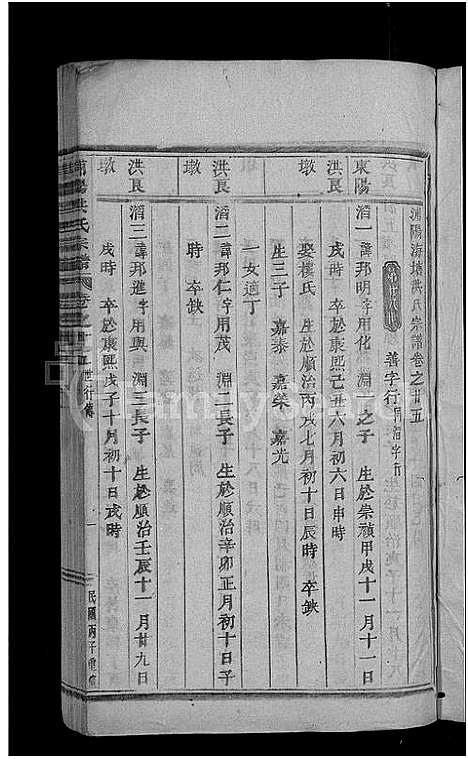 陽海塘洪氏宗譜卷之廿五
善字行同滔字行
東陽洪良墩
滔一 諱邦明字用化 淵一之子 生於崇禎甲戌十一月十一日
戌時 卒於康熙己丑六月初六日申時
娶樓氏 生於順治丙戌七月初十日辰時 卒缺
生三子 嘉泰 嘉榮 嘉光
一女適丁
洪良墩
滔二 諱邦仁字用茂 淵二長子 生於順治辛卯正月初十日子
時 卒缺
洪良墩
滔三 諱邦進字用興 淵三長子 生於順治壬辰十一月廿九日
戌時 卒於康熙戊子十月初十日戌時
陽洪氏宗譜
卷之廿五
世行傳
一
民國丙子重修